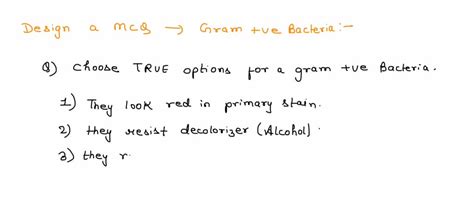 Design a MCQ → Gram +ve Bacteria:-
Q) Choose TRUE options for a gram +ve Bacteria.
1) They look red in primary stain.
2) they resist decolorizer (Alcohol).
3) they r